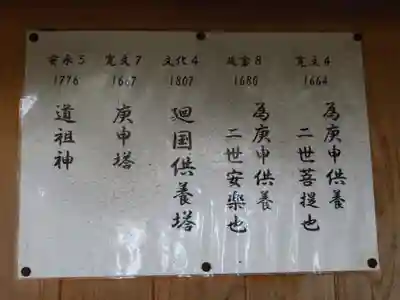 寛文4
1664
為庚申供養
二世菩提也
延宝8
1680
為庚申供養
二世安楽也
文化4
1807
廻国供養塔
寛文7
1667
庚申塔
安永5
1776
道祖神